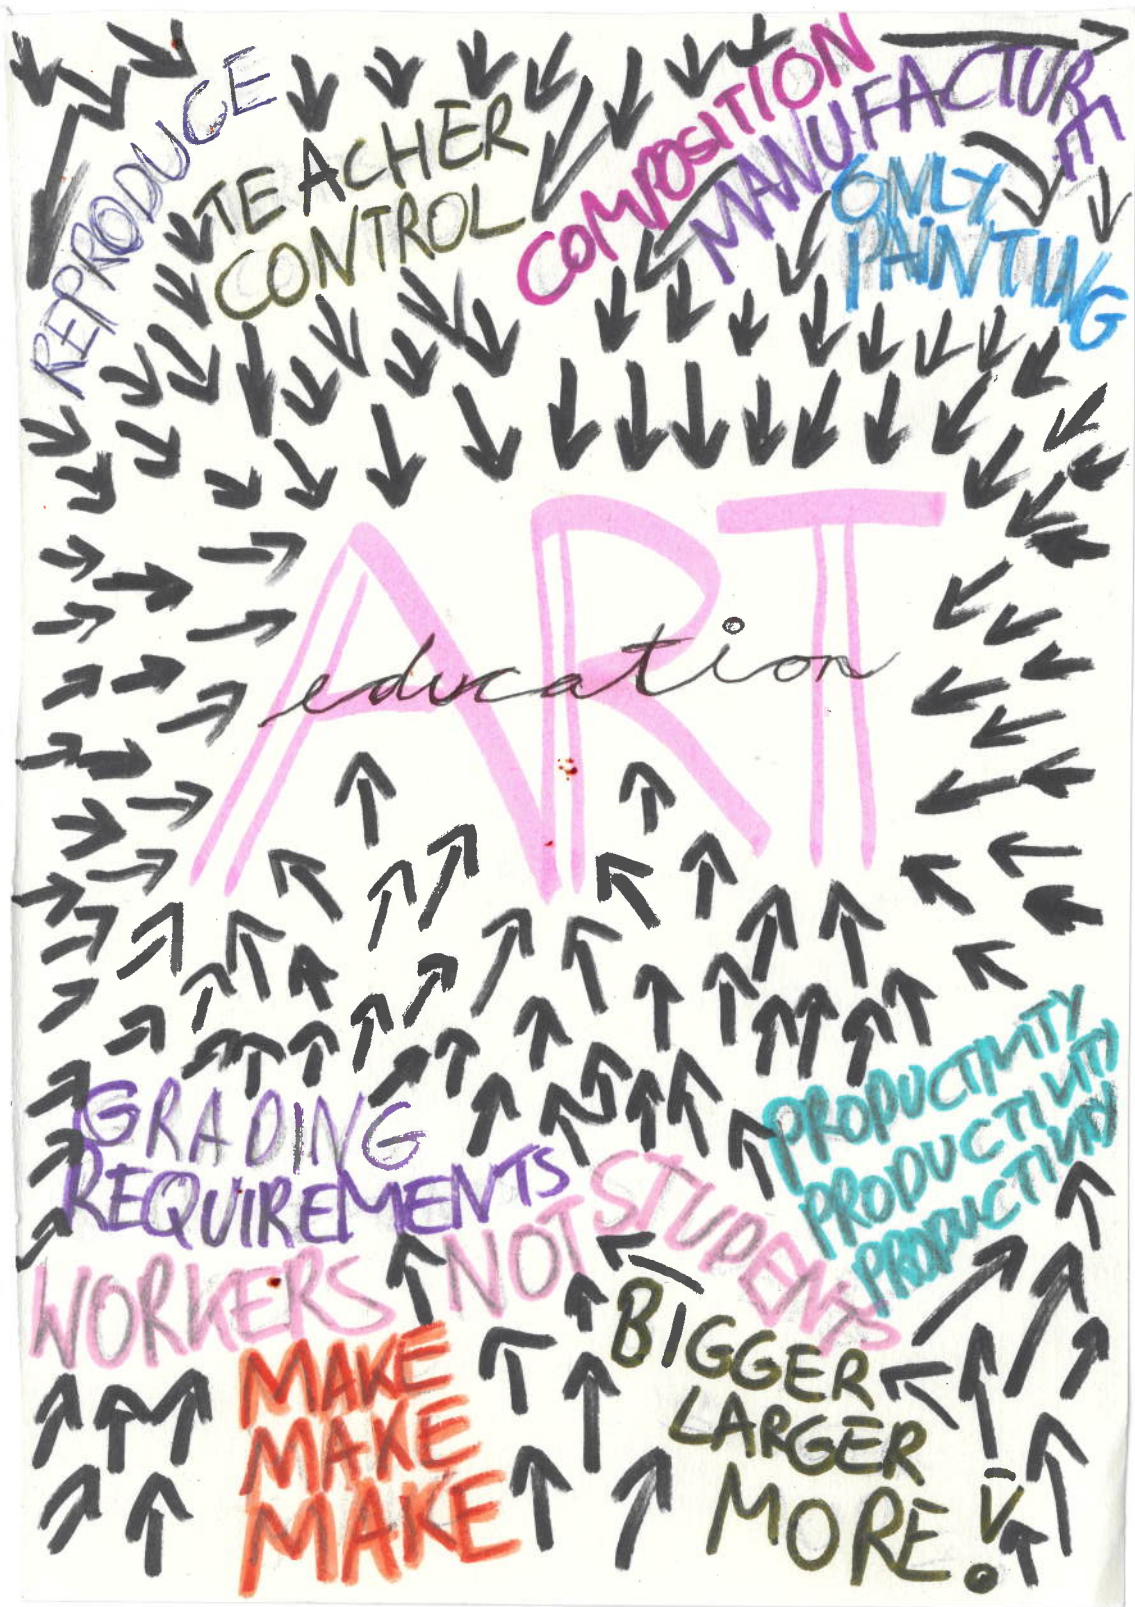 REPRODUCE
TEACHER
CONTROL
COMPOSITION
MANUFACTURE
ONLY
PAINTING
ART
education
GRADING
REQUIREMENTS
PRODUCTIVITY
PRODUCTIVITY
PRODUCTIVITY
WORKERS NOT STUDENTS
MAKE
MAKE
MAKE
BIGGER
LARGER
MORE!